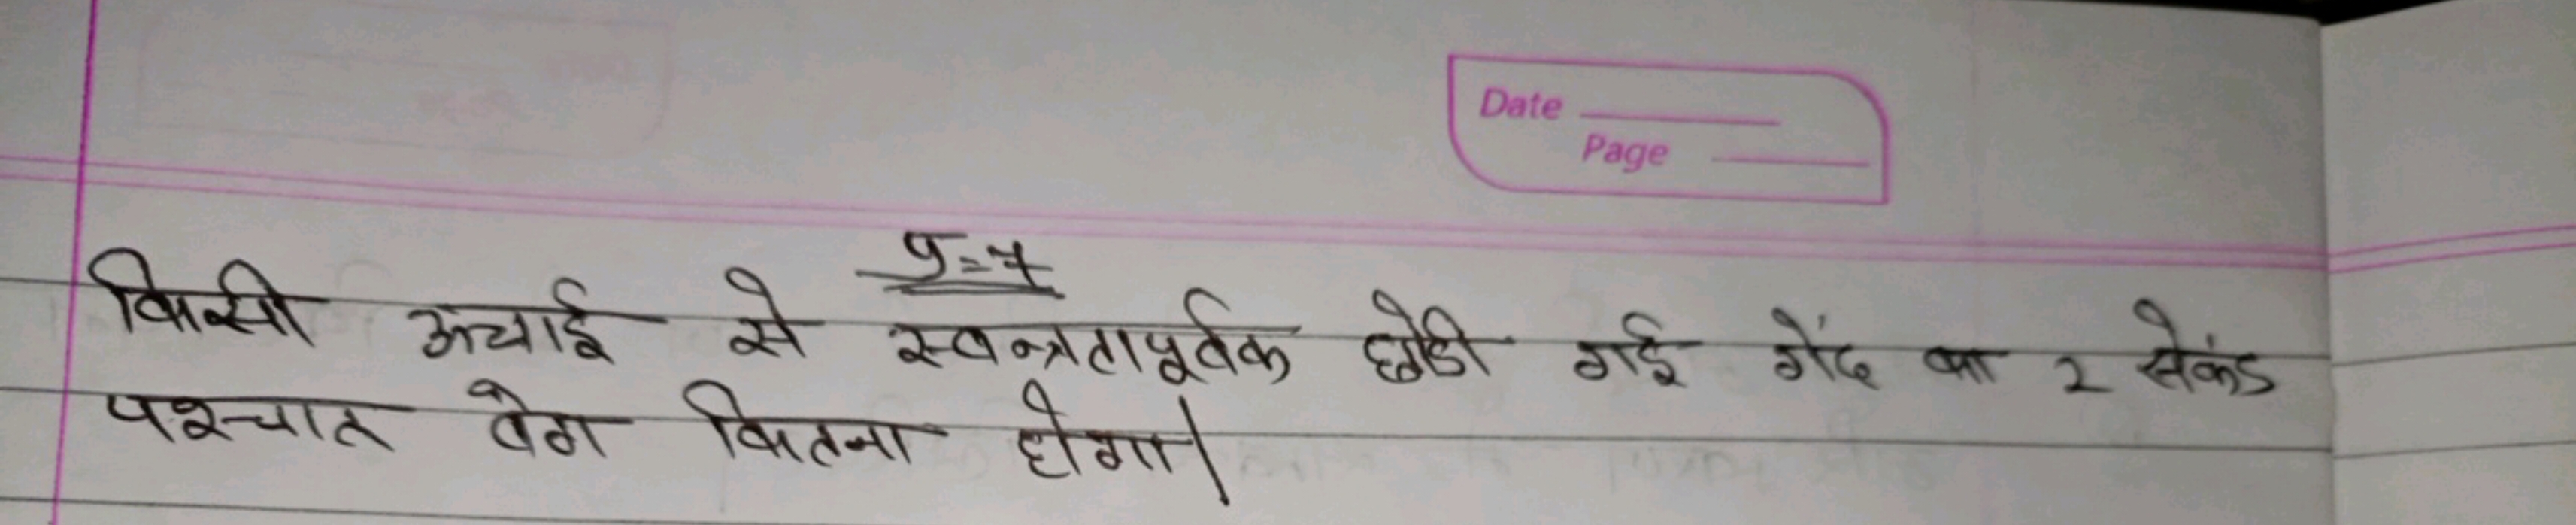 Date
Page
प्र=7
किसी ऊचाई से स्वन्त्रतापूर्वक छोडी गई गेंद का 2 सेकंड
पश्चात वेग कितना होगा|